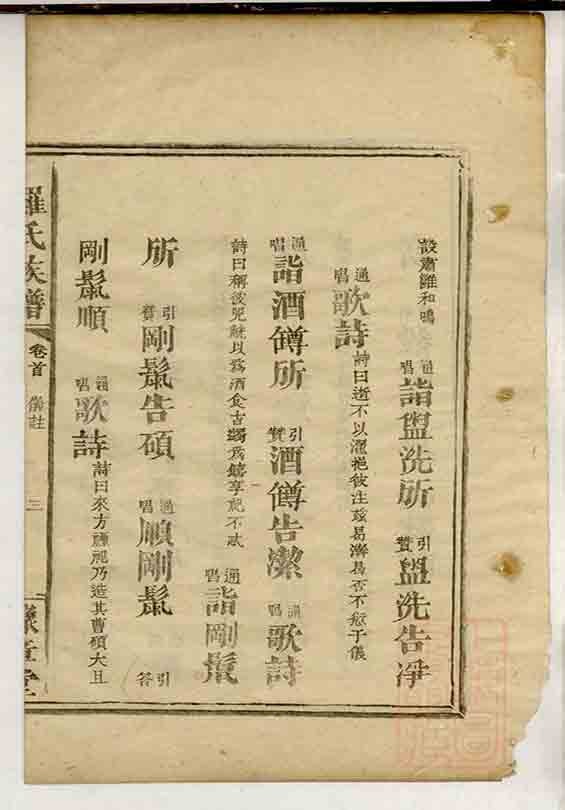 設肅雝和鳴
通唱詣盥洗所 引贊盥洗告凈
通唱歌詩 詩曰 不以濯挹彼注玆易 易否不愆于儀
通唱詣酒罇所 引贊酒罇告潔 通唱歌詩
詩曰稱彼兕觥以爲酒食吉蠲爲饎享祀不忒
通唱詣剛鬛
所 引贊剛鬛告碩 通唱順剛鬛 引答
剛鬛順 通唱歌詩 詩曰來方禋祀乃造其曹碩大且
羅氏族譜 卷首 儀註 三